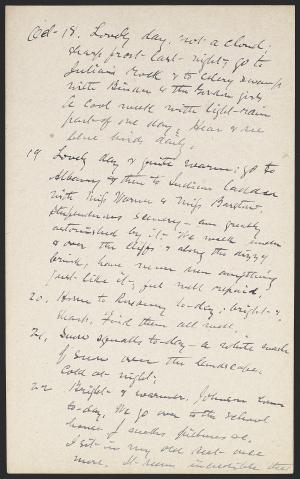 Oct - 18. Lovely day, not a cloud;
sharp frost last night, go to
Julian's Rock & to Celery swamp
with Binder & the girls
A cool week with light rain
part of one day, Hear & see
blue birds daily.
19 Lovely day & quite warm; go to
Albany & then to Indian Ladder
with Miss Warner & Miss Barstow.
Stupendous scenery - am greatly
astonished by it. We walk under
& over the cliffs & along the dizzy
brink, have never seen anything
just like it, feel well repaid.
20. Home to Roxbury to-day; bright &
warm. Find them all well.
21, Snow squalls to-day - a white
of snow over the landscape.
Cold at night;
22 Bright & warmer, Johnson
to-day. We go over to the school
house & pictures &c.
I sit in my old seat once
more. It seems incredible that